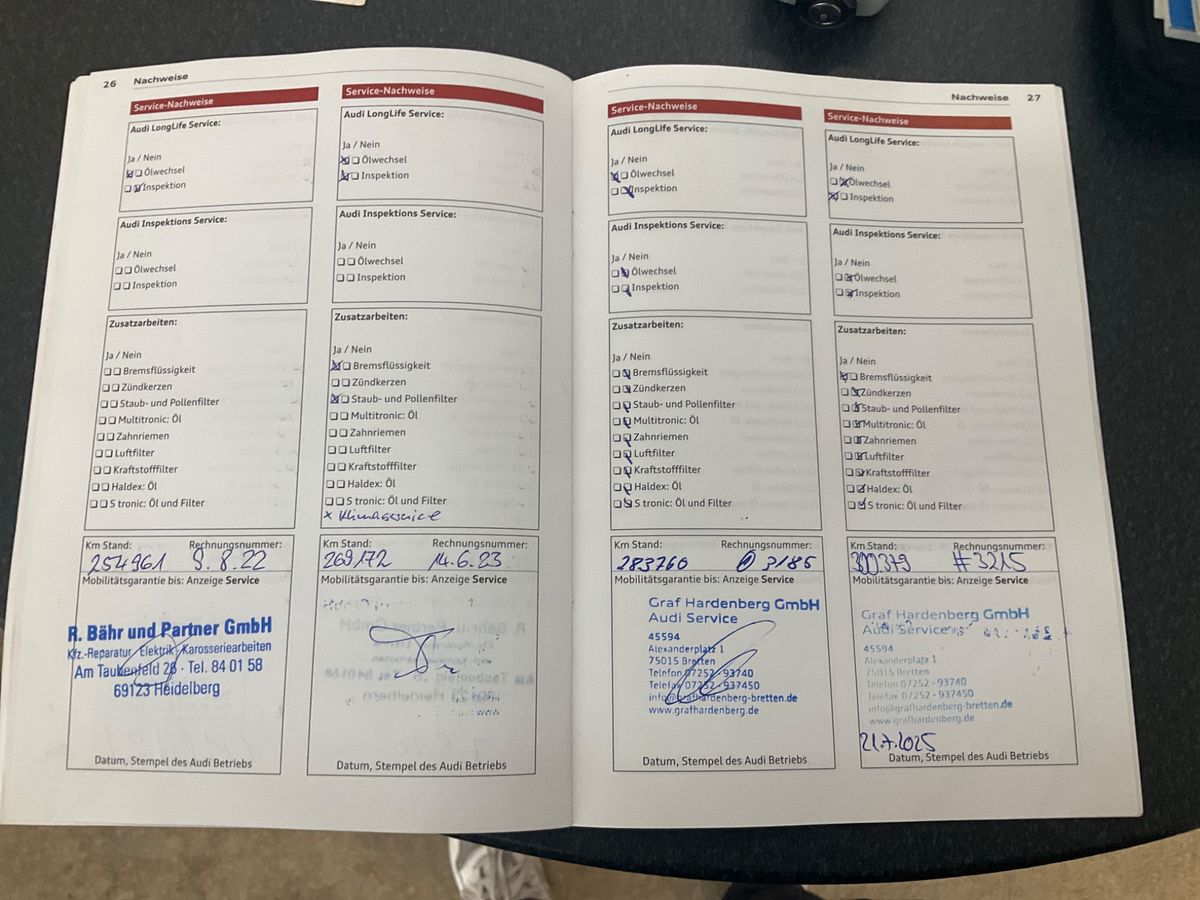 26 Nachweise
Service-Nachweise
Audi LongLife Service:
Ja / Nein
Ölwechsel
Inspektion
Audi Inspektions Service:
Ja / Nein
Ölwechsel
Inspektion
Zusatzarbeiten:
Ja / Nein
Bremsflüssigkeit
Zündkerzen
Staub- und Pollenfilter
Multitronic: Öl
Zahnriemen
Luftfilter
Kraftstofffilter
Haldex: Öl
S tronic: Öl und Filter
Km Stand: Rechnungsnummer:
254961 9.8.22
Mobilitätsgarantie bis: Anzeige Service
R. Bähr und Partner GmbH
Kfz.-Reparatur, Elektrik, Karosseriearbeiten
Am Taubenfeld 28 · Tel. 84 01 58
69123 Heidelberg
Datum, Stempel des Audi Betriebs
Service-Nachweise
Audi LongLife Service:
Ja / Nein
Ölwechsel
Inspektion
Audi Inspektions Service:
Ja / Nein
Ölwechsel
Inspektion
Zusatzarbeiten:
Ja / Nein
Bremsflüssigkeit
Zündkerzen
Staub- und Pollenfilter
Multitronic: Öl
Zahnriemen
Luftfilter
Kraftstofffilter
Haldex: Öl
S tronic: Öl und Filter
x Klimaservice
Km Stand: Rechnungsnummer:
269172 14.6.23
Mobilitätsgarantie bis: Anzeige Service
Datum, Stempel des Audi Betriebs
Nachweise 27
Service-Nachweise
Audi LongLife Service:
Ja / Nein
Ölwechsel
Inspektion
Audi Inspektions Service:
Ja / Nein
Ölwechsel
Inspektion
Zusatzarbeiten:
Ja / Nein
Bremsflüssigkeit
Zündkerzen
Staub- und Pollenfilter
Multitronic: Öl
Zahnriemen
Luftfilter
Kraftstofffilter
Haldex: Öl
S tronic: Öl und Filter
Km Stand: Rechnungsnummer:
283760 3185
Mobilitätsgarantie bis: Anzeige Service
Graf Hardenberg GmbH
Audi Service
45594
Alexanderplatz 1
75015 Bretten
Telefon 07252 - 93740
Telefax 07252 - 937450
info@grafhardenberg-bretten.de
www.grafhardenberg.de
Datum, Stempel des Audi Betriebs
Service-Nachweise
Audi LongLife Service:
Ja / Nein
Ölwechsel
Inspektion
Audi Inspektions Service:
Ja / Nein
Ölwechsel
Inspektion
Zusatzarbeiten:
Ja / Nein
Bremsflüssigkeit
Zündkerzen
Staub- und Pollenfilter
Multitronic: Öl
Zahnriemen
Luftfilter
Kraftstofffilter
Haldex: Öl
S tronic: Öl und Filter
Km Stand: Rechnungsnummer:
300379 #3215
Mobilitätsgarantie bis: Anzeige Service
Graf Hardenberg GmbH
Audi Service
45594
Alexanderplatz 1
75015 Bretten
Telefon 07252 - 93740
Telefax 07252 - 937450
info@grafhardenberg-bretten.de
www.grafhardenberg.de
21.7.2025
Datum, Stempel des Audi Betriebs